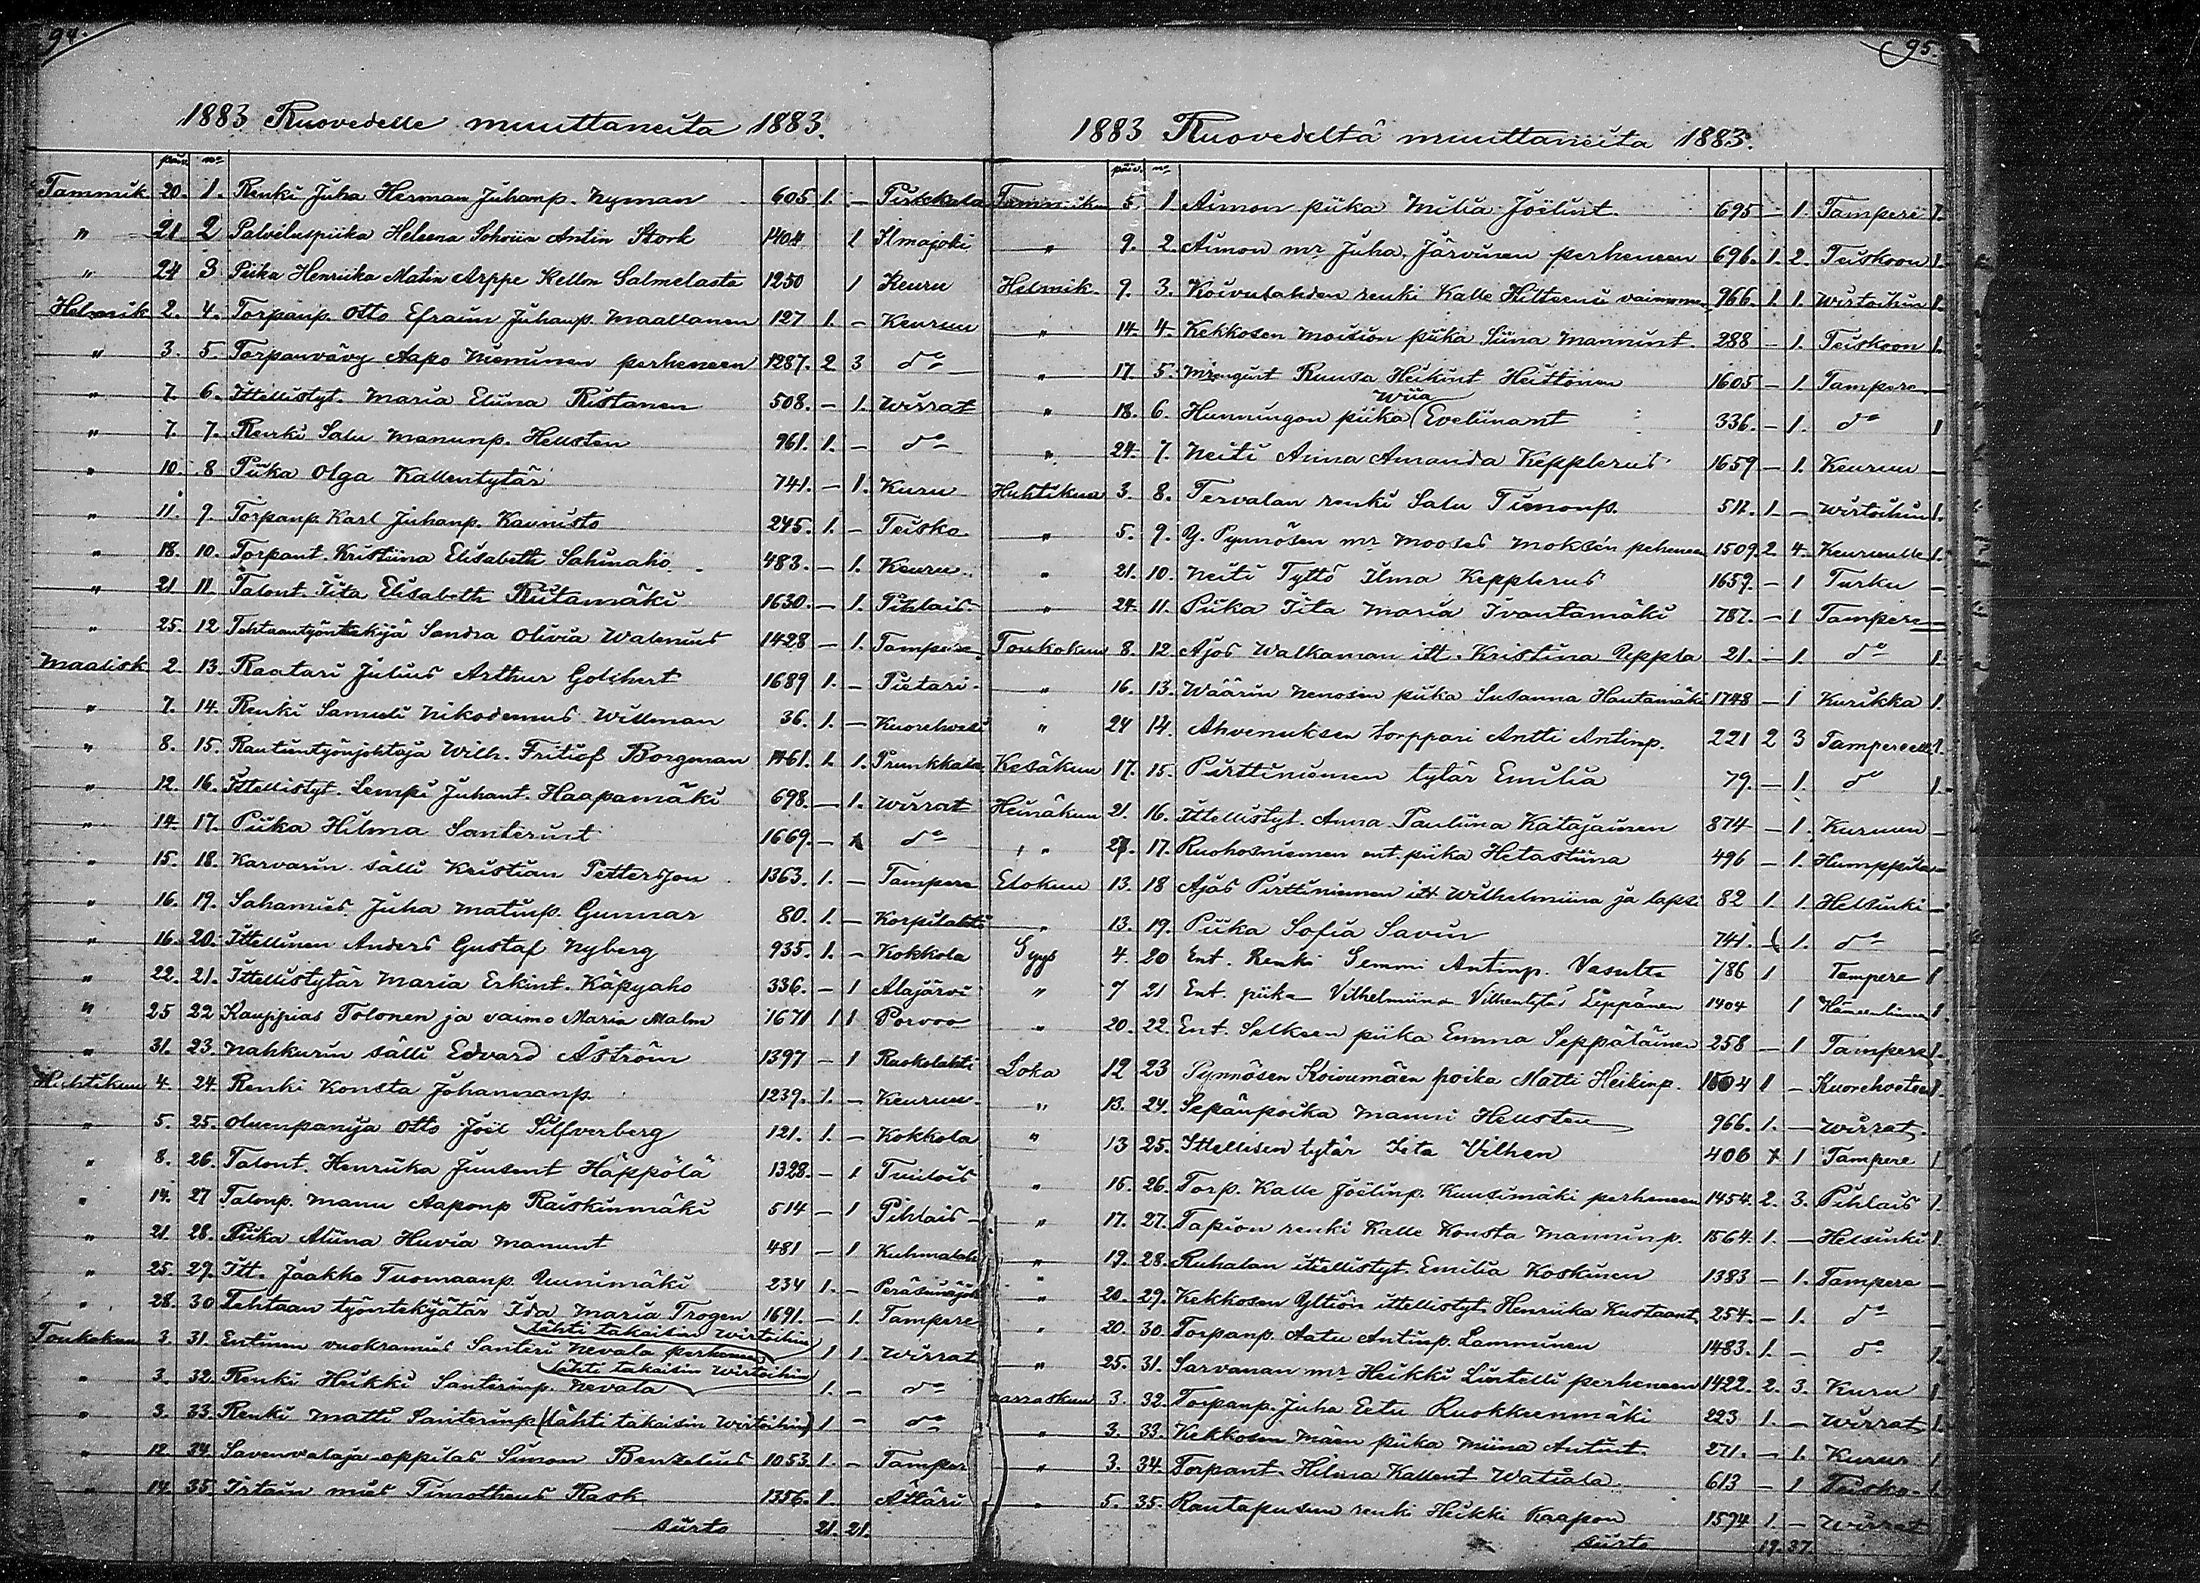 94.
1883 Ruovedelle muuttaneita 1883.
päiv. no
Tammik 20. 1. Renki Juha Herman Juhanp. Nyman 605 1. – Pirkkala
" 21 2 Palveluspiika Helena Sohviia Antin Stork 1404 1 Ilmajoki
" 24 3 Piika Henriika Matin Arppe Kellon Salmelasta 1250 1 Keuru
Helmik 2. 4. Torpanp. Otto Efraim Juhanp. Maallanen 127 1. – Keuruu
" 3. 5. Torpanvävy Aapo Nieminen perheneen 1287. 2 3 do
" 7. 6. Ittellistyt. Maria Eliina Ristanen 508. – 1. Wirrat
" 7. 7. Renki Salu Manunp. Hellsten 961. 1. – do
" 10. 8 Piika Olga Kallentytär 741. – 1. Kuru
" 11. 9. Torpanp. Karl Juhanp. Kaunisto 245. 1. – Teisko
" 18. 10. Torpant. Kristiina Elisabeth Sahinaho 483. – 1. Keuru
" 21 11 Talont. Iita Elisabeth Riitamäki 1630. – 1. Pihlais
" 25. 12 Tehtaantyöntekijä Sandra Olivia Walenius 1428 – 1. Tampere
Maalisk 2. 13. Raatari Julius Arthur Golchert 1689 1. – Pietari
" 7. 14. Renki Samuli Nikodemus Willman 36. 1. – Kuorehvesi
" 8. 15. Rautientyönjohtaja Wilh. Fritiof Borgman 1461. 1. 1. Prunkkala
" 12. 16. Ittellistyt. Lempi Juhant. Haapamäki 698. – 1. Wirrat
" 14. 17. Piika Hilma Santerint 1669. – 1 do
" 15. 18. Karvarin sälli Kristian Pettersson 1363. 1. – Tampere
" 16. 19. Sahamies Juha Matinp. Gunnar 80. 1. – Korpilahti
" 16. 20. Ittellinen Anders Gustaf Nyberg 935. 1. – Kokkola
" 22. 21. Ittellistytär Maria Erkint. Käpyaho 336. – 1 Alajärvi
" 25 22 Kauppias Tolonen ja vaimo Maria Malm 1671 1 1 Porvoo
" 31. 23. Nahkurin sälli Edvard Åström 1397 – 1 Raskolahti
Huhtikuu 4. 24. Renki Konsta Johannanp. 1239. 1. – Keuruu
" 5. 25. Oluenpanija Otto Joel Silfverberg 121. 1. – Kokkola
" 8. 26. Talont. Henriika Juusent Häppölä 1328. – 1 Tuulois
" 14. 27 Talonp. Manu Aaponp Raiskinmäki 514 – 1 Pihlais
" 21 28. Piika Aliina Huvia Manunt 481 – 1 Kuhmalah
" 25. 29. Itt. Jaakko Tuomaanp. Uunimäki 234 1. – Peräseinäjok
" 28. 30 Tehtaan työntekijätär Ida Maria Trogen 1691. – 1. Tampere
lähti takaisin Wirtoihin
Toukokuu 3. 31. Entinen vuokramies Santeri Nevala perheneen 1 1. Wirrat
lähti takaisin Wirtoihin
" 3. 32. Renki Heikki Santerinp. Nevala 1. – do
" 3. 33. Renki Matti Santerinp (lähti takaisin Wirtoihin) 1 – do
" 12. 34. Savenvalaja-oppilas Simon Benzelius 1053. 1. – Tamper
" 14. 35. Irtain mies Timotheus Rask 1356. 1. Ättäri
siirto 21. 21.
95.
1883 Ruovedeltä muuttaneita 1883.
päiv. no
Tammiku 5. 1 Aumon piika Milia Joelint. 695 – 1. Tampere 1.
" 9. 2. Aumon mr Juha Järvinen perheneen 696. 1. 2. Teiskoon 1.
Helmik. 9. 3. Koivulahden renki Kalle Hitteeni vaimone 966. 1. 1. Wirtoihin 1.
" 14. 4. Kekkosen moision piika Siina Mannint. 288 – 1. Teiskoon 1.
" 17 5. Ruusa Heikint Heittonen 1605 – 1. Tampere –
" 18. 6. Hunningon piika (Wiia Eveliinant 336. – 1. do 1
" 24. 7. Neiti Anna Amanda Kepplerus 1659 – 1. Keuruu –
Huhtikuu 3. 8. Tervalan renki Salu Timonp. 512. 1. – Wirtoihin 1.
" 5. 9. Y. Pynnösen mr. Mooses Moksén peheneen 1509. 2 4. Keuruulle 1.
" 21. 10. Neiti Tyttö Ilma Kepplerus 1659. – 1 Turku –
" 24. 11. Piika Iita Maria Ivantamäki 787. – 1 Tampere –
Toukokuu 8. 12. Ajos Walkaman itt. Kristiina Uppla 21. – 1. do 1.
" 16. 13. Wäärin Nenosen piika Susanna Hautamäki 1748 – 1 Kurikka 1.
" 24 14. Ahvenuksen torppari Antti Antinp. 221 2 3 Tampereelle 1.
Kesäkuu 17. 15. Pirttiniemen tytär Emilia 79. – 1. do 1.
Heinäkuu 21. 16. Ittellistyt. Anna Pauliina Katajainen 874 – 1. Kuruun –
" 27. 17. Ruohosniemen ent. piika Hetastiina 496 – 1. Humppila –
Elokuu 13. 18 Ajos Pirttiniemen itt Wilhelmiina ja lapsi 82 1. 1. Helsinki –
" 13. 19. Piika Sofia Savin 741. – 1. do –
Syys 4. 20 Ent. Renki Semmi Antinp. Vasulta 786 1 Tampere 1
" 7 21 Ent. piika Vilhelmiina Vilhentytär Leppänen 1404 1 Hämeenlinna 1.
" 20. 22. Ent. Selkeen piika Emma Seppäläinen 258 – 1 Tampere 1.
Loka 12 23 Pynnösen Koivumäen poika Matti Heikinp. 1504 1 – Kuorehveteen 1.
" 13. 24. Sepänpoika Manni Hellsten 966. 1. – Wirrat.
" 13 25. Ittellisen tytär Iita Vilhen 406 1 Tampere 1
" 15. 26. Torp. Kalle Joelinp. Kuusimäki perheneen 1454. 2. 3. Pihlais 1.
" 17. 27. Tapion renki Kalle Konsta Manninp. 1564. 1. – Helsinki 1.
" 19. 28. Ruhalan ittellistyt. Emilia Koskinen 1383 – 1. Tampere –
" 20. 29. Kekkosen Yltiön ittellistyt. Henriika Kustaant. 254. – 1. do –
" 20. 30. Torpanp. Aatu Antinp. Lamminen 1483. 1. – do 1.
" 25. 31. Sarvanan mr Heikki Liutelli perheneen 1422. 2. 3. Kuru 1
marraskuu 3. 32. Torpanp. Juha Eetu Ruokkeenmäki 223 1. – Wirrat 1.
" 3. 33. Kekkosen Mäen piika Miina Antint. 271. – 1. Kuruu 1
" 3. 34. Torpant. Hilma Kallent Watiala 613 – 1 Teisko. 1.
" 5. 35. Rautapusun renki Heikki Kaapon 1594 1. – Wirrat
siirto 19. 37.